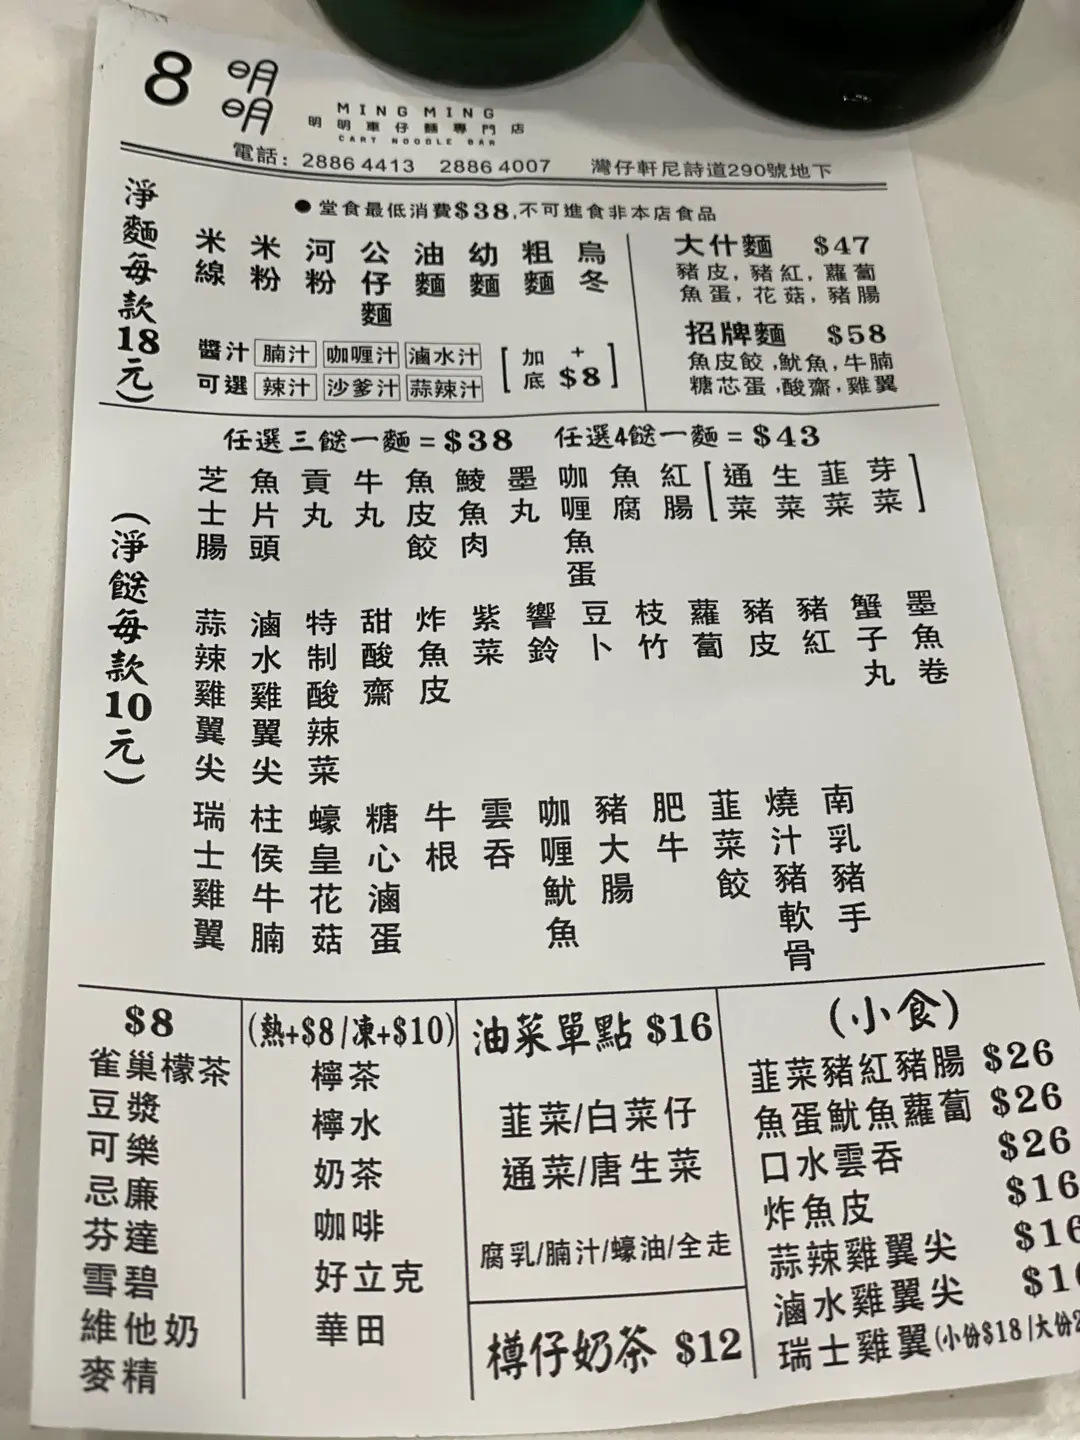 8 明明
MING MING
明明車仔麵專門店
CART NOODLE BAR
電話: 2886 4413 2886 4007 灣仔軒尼詩道290號地下
●堂食最低消費$38,不可進食非本店食品
淨麵每款18元)
米線 米粉 河粉 公仔麵 油麵 幼麵 粗麵 烏冬
醬汁 腩汁 咖喱汁 滷水汁
可選 辣汁 沙爹汁 蒜辣汁
[加底 +$8]
大什麵 $47
豬皮,豬紅,蘿蔔
魚蛋,花菇,豬腸
招牌麵 $58
魚皮餃,魷魚,牛腩
糖芯蛋,酸齋,雞翼
任選三餸一麵=$38 任選4餸一麵=$43
(淨餸每款10元)
芝士腸 魚片頭 貢丸 牛丸 魚皮餃 鯪魚肉 墨丸 咖喱魚蛋 魚腐 紅腸 [通菜 生菜 韮菜 芽菜]
蒜辣雞翼尖 滷水雞翼尖 特制酸辣菜 甜酸齋 炸魚皮 紫菜 響鈴 豆卜 枝竹 蘿蔔 豬皮 豬紅 蟹子丸 墨魚卷
瑞士雞翼 柱侯牛腩 蠔皇花菇 糖心滷蛋 牛根 雲吞 咖喱魷魚 豬大腸 肥牛 韮菜餃 燒汁豬軟骨 南乳豬手
$8
雀巢檬茶
豆漿
可樂
忌廉
芬達
雪碧
維他奶
麥精
(熱+$8/凍+$10)
檸茶
檸水
奶茶
咖啡
好立克
華田
油菜單點 $16
韮菜/白菜仔
通菜/唐生菜
腐乳/腩汁/蠔油/全走
樽仔奶茶 $12
(小食)
韮菜豬紅豬腸 $26
魚蛋魷魚蘿蔔 $26
口水雲吞 $26
炸魚皮 $16
蒜辣雞翼尖 $16
滷水雞翼尖
瑞士雞翼(小份$18/大份